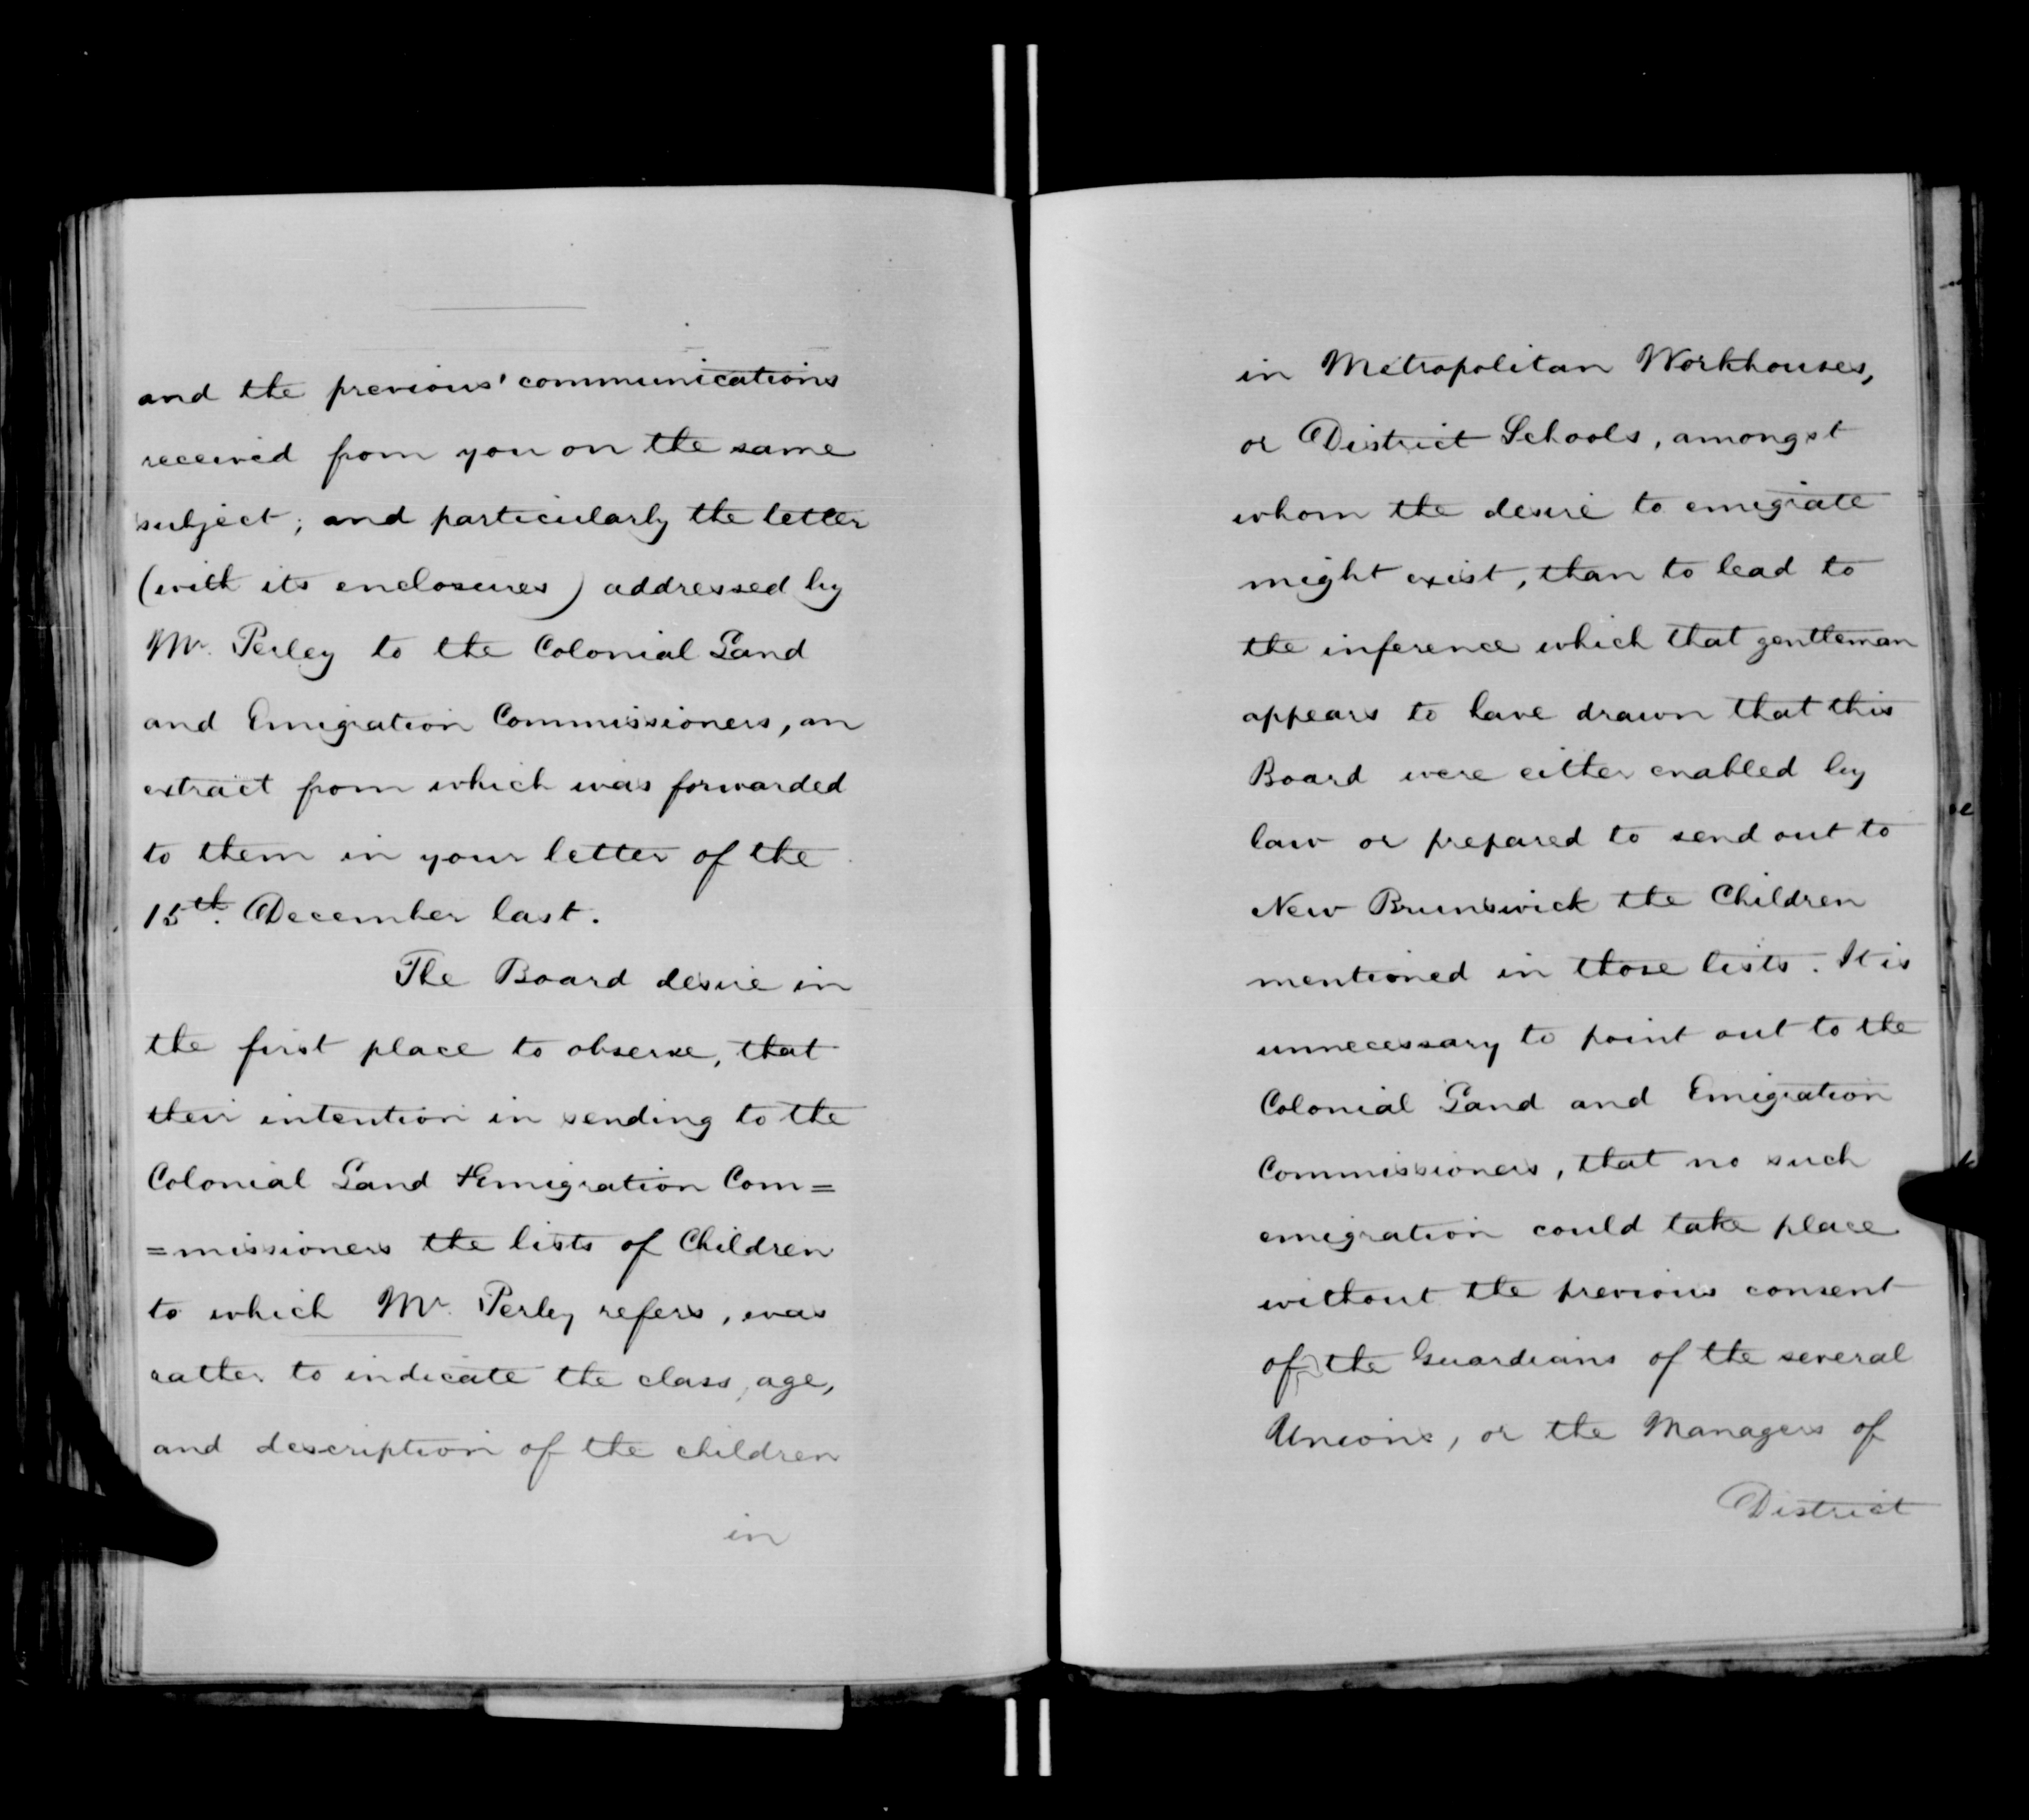 and the previous communications
received from you on the same
subject; and particularly the letter
(with its enclosures) addressed by
Mr. Perley to the Colonial Land
and Emigration Commissioners, an
extract from which was forwarded
to them in your letter of the
15th. December last.
The Board desire in
the first place to observe, that
their intention in sending to the
Colonial Land & Emigration Com=
=missioners the lists of Children
to which Mr. Perley refers, was
rather to indicate the class, age,
and description of the children
in
in Metropolitan Workhouses,
or District Schools, amongst
whom the desire to emigrate
might exist, than to lead to
the inference which that gentleman
appears to have drawn that this
Board were either enabled by
law or prepared to send out to
New Brunswick the Children
mentioned in those lists. It is
unnecessary to point out to the
Colonial Land and Emigration
Commissioners, that no such
emigration could take place
without the previous consent
of the Guardians of the several
Unions, or the Managers of
District